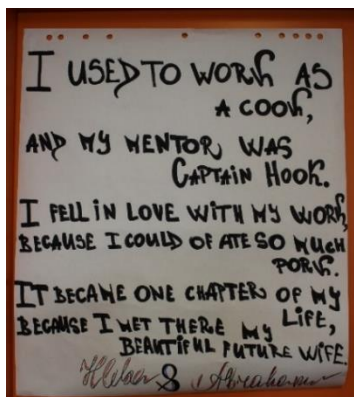 I USED TO WORK AS
A COOK,
AND MY MENTOR WAS
CAPTAIN HOOK.
I FELL IN LOVE WITH MY WORK,
BECAUSE I COULD OF ATE SO MUCH
PORK.
IT BECAME ONE CHAPTER OF MY
LIFE,
BECAUSE I MET THERE MY
BEAUTIFUL FUTURE WIFE.
&